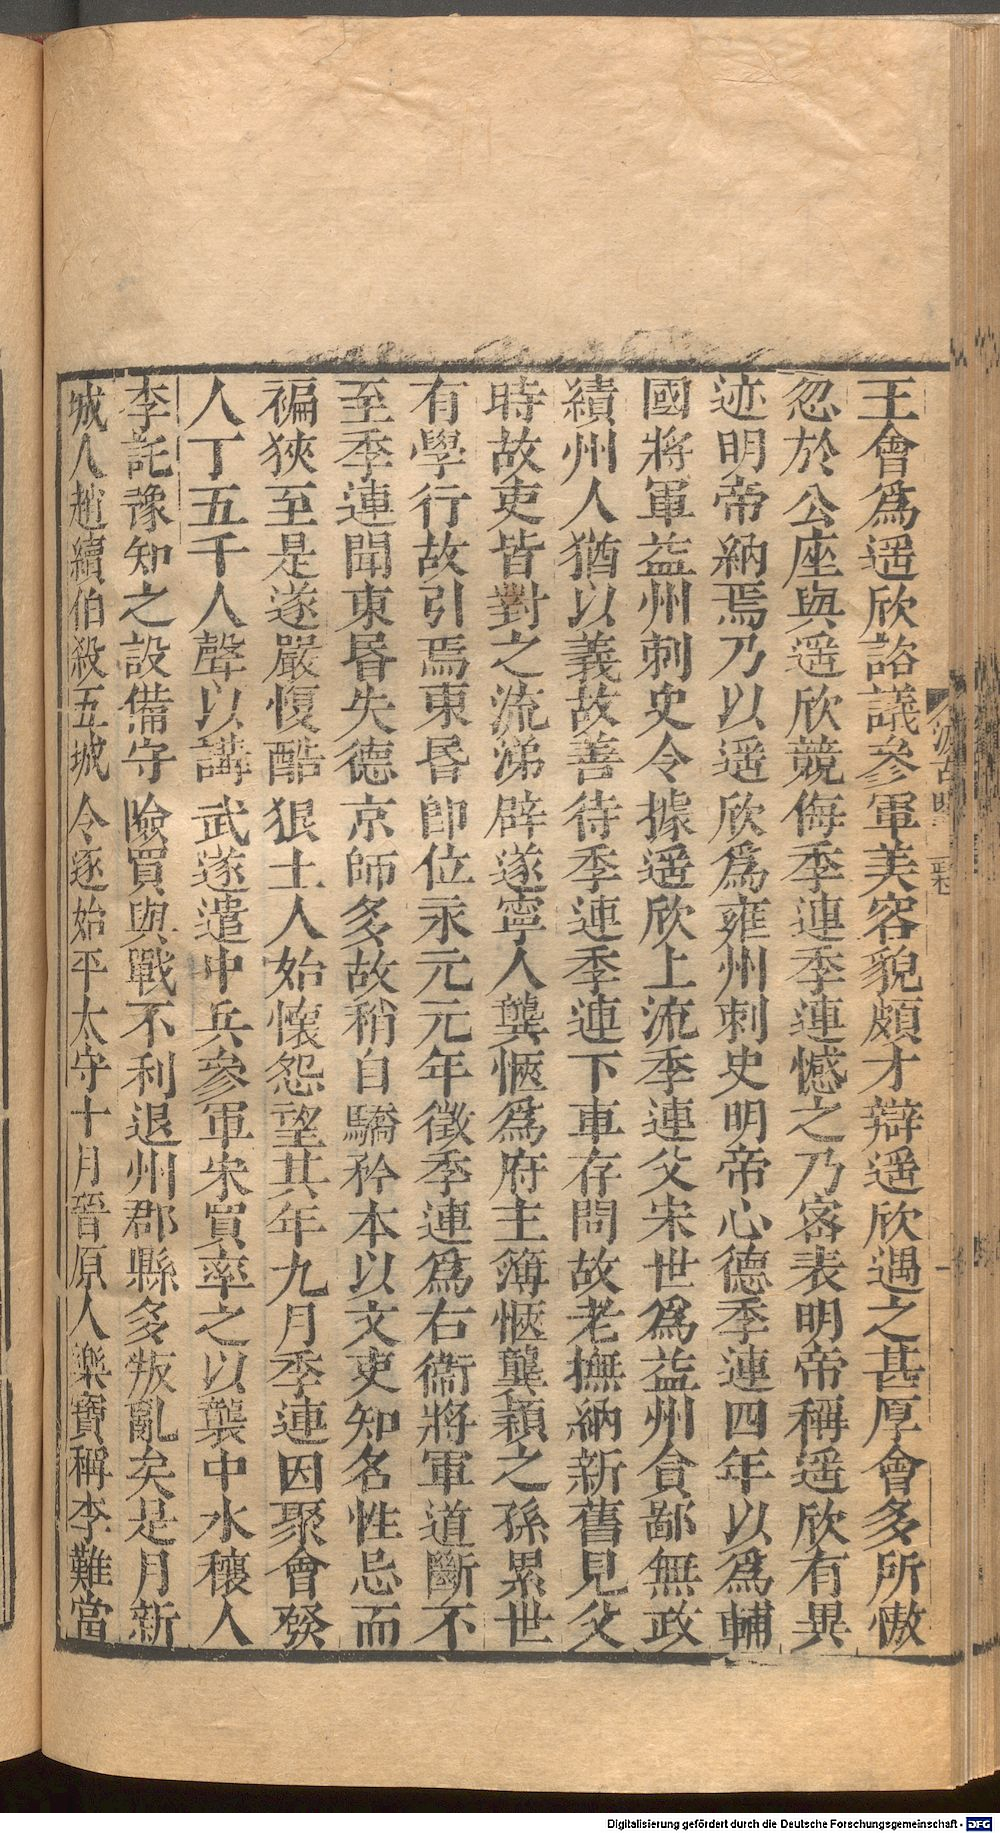 王會爲遥欣諮議參軍美容貌頗才辯遥欣遇之甚厚會多所慠
忽於公座與遥欣競侮季連季連憾之乃密表明帝稱遥欣有異
迹明帝納焉乃以遥欣爲雍州刺史明帝心德季連四年以爲輔
國將軍益州刺史令據遥欣上流季連父宋世爲益州貪鄙無政
績州人猶以義故善待季連季連下車存問故老撫納新舊見父
時故吏皆對之流涕辟遂寧人龔愜爲府主簿愜龔穎之孫累世
有學行故引焉東昏卽位永元元年徵季連爲右衞將軍道斷不
至季連聞東昏失德京師多故稍自驕矜本以文吏知名性忌而
褊狹至是遂嚴愎酷狠土人始懷怨望其年九月季連因聚會發
人丁五千人聲以講武遂遣中兵參軍宋買率之以襲中水穰人
李託豫知之設備守險買與戰不利退州郡縣多叛亂矣是月新
城人趙續伯殺五城令逐始平太守十月晉原人樂寶稱李難當
Digitalisierung gefördert durch die Deutsche Forschungsgemeinschaft - DFG